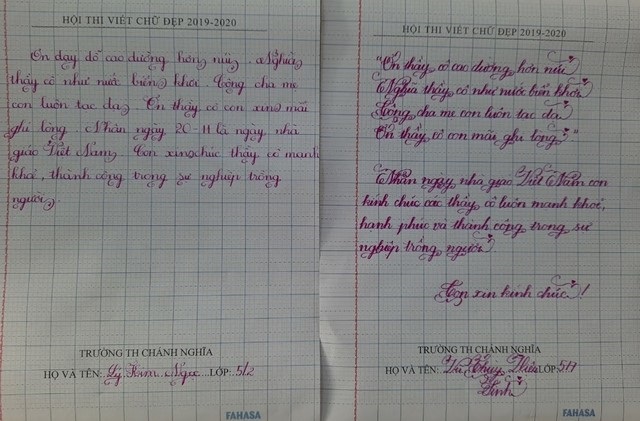 HỘI THI VIẾT CHỮ ĐẸP 2019-2020
Ơn dạy dỗ cao dường hơn núi. Nghĩa
thầy cô như nước biển khơi. Công cha mẹ
con luôn tạc dạ. Ơn thầy cô con xin mãi
ghi lòng. Nhân ngày 20-11 là ngày nhà
giáo Việt Nam. Con xin chúc thầy cô mạnh
khỏe, thành công trong sự nghiệp trồng
người.
TRƯỜNG TH CHÁNH NGHĨA
HỌ VÀ TÊN: Lý Kim Ngọc LỚP: 5/2
FAHASA
HỘI THI VIẾT CHỮ ĐẸP 2019-2020
"Ơn thầy cô cao dường hơn núi
Nghĩa thầy cô như nước biển khơi
Công cha mẹ con luôn tạc dạ
Ơn thầy cô con mãi ghi lòng."
Nhân ngày nhà giáo Việt Nam con
kính chúc các thầy cô luôn mạnh khoẻ,
hạnh phúc và thành công trong sự
nghiệp trồng người.
Con xin kính chúc!
TRƯỜNG TH CHÁNH NGHĨA
HỌ VÀ TÊN: Vũ Thuỵ Thiên LỚP: 5/7
Linh
FAHASA